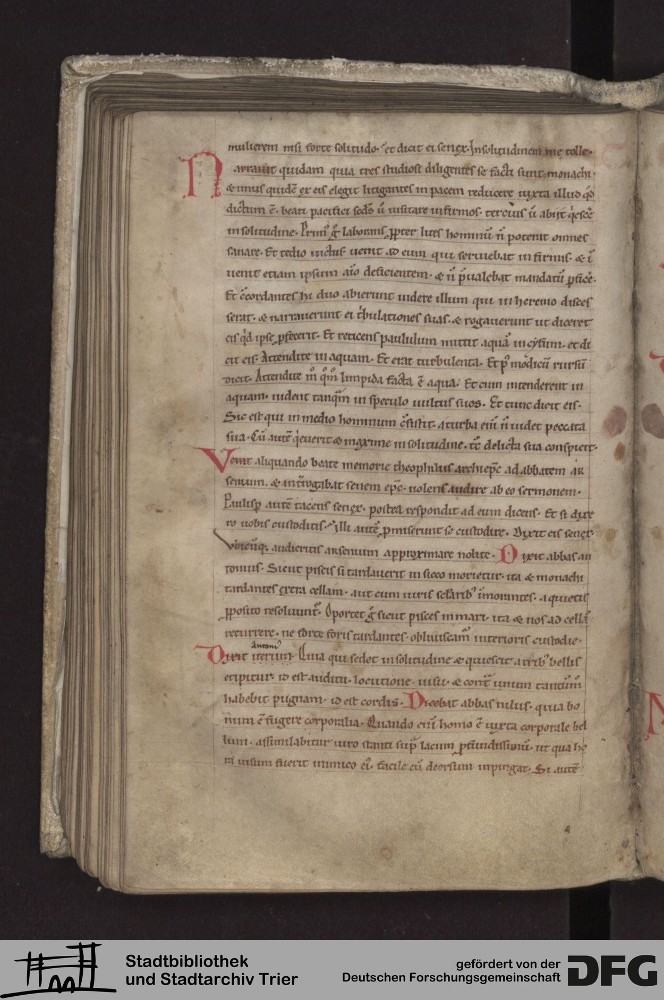 mulierem nisi forte solitudo. et dicit ei senex. In solitudinem me tolle.
Narrauit quidam quia tres studiosi diligentes se facti sunt monachi
& unus quidē ex eis elegit litigantes in pacem reducere iuxta illud qd̄
dictum ē. beati pacifici. scd̄s ū uisitare infirmos. tercius ū abiit
in solitudine. Prim' g̃ laborans ꝓpter lites hominū n̄ poterat omnes
sanare. Et tedio uictus uenit ad eum qui seruiebat infirmis. & ī
uenit etiam ipsum aīo deficientem. & n̄ p̄ualebat mandatū ꝑficē.
Et ꝯcordantes hi duo abierunt uidere illum qui in heremo disces
serat. & narrauerunt ei t̾bulationes suas. & rogauerunt ut diceret
eis qd̾ ipse ꝓfecerit. Et reticens paululum mittit aquā in cyfum. et di
cit eis. Attendite in aquam. Et erat turbulenta. Et p' modicū rursū
dicit. Attendite m̊ qm̄ limpida facta ē aqua. Et cum intenderent in
aquam. uident tanqm̄ in speculo uultus suos. Et tunc dicit eis.
Sic est qui in medio hominum ꝯsistit. a turba enī n̄ uidet peccata
sua. Cū autē qieuerit & maxime in solitudine. tc̄ delicta sua conspicit.
Venit aliquando beate memorie theophilus archiepc̄ ad abbatem ar
senium. & int̾rogabat senem epc̄. uolens audire ab eo sermonem.
Paulisp autē tacens senex. postea respondit ad eum dicens. Et si dixe
ro uobis custoditis. illi autē ꝓmiserunt se custodire. Dixit eis senex.
Vbicūq; audieritis arsenium approximare nolite. Dixit abbas an
tonius. Sicut piscis si tardauerit in sicco morietur. ita & monachi
tardantes extra cellam. aut cum uiris sclarib' īmorantes. a quietis
ꝓposito resoluunt'. Oportet g̃ sicut pisces in mari. ita & nos ad cellā
recurrere. ne forte foris tardantes. obliuiscam' interioris custodie.
antoni'
Dixit iterum. Quia qui sedet in solitudine & quiescit a trib' bellis
eripitur. id est auditu. locutione. uisu. & cont̾ unum tantūm̄
habebit pugnam. id est cordis. Dicebat abbas nilus. quia bo
num ē fugere corporalia. Quando enī homo ē iuxta corporale bel
lum. assimilabitur uiro stanti sup̾ lacum ꝓfundissimū. ut qua ho
ra uisum fuerit inimico ei'. facile eū deorsum inpingat. Si autē
Stadtbibliothek
und Stadtarchiv Trier
gefördert von der
Deutschen Forschungsgemeinschaft
DFG